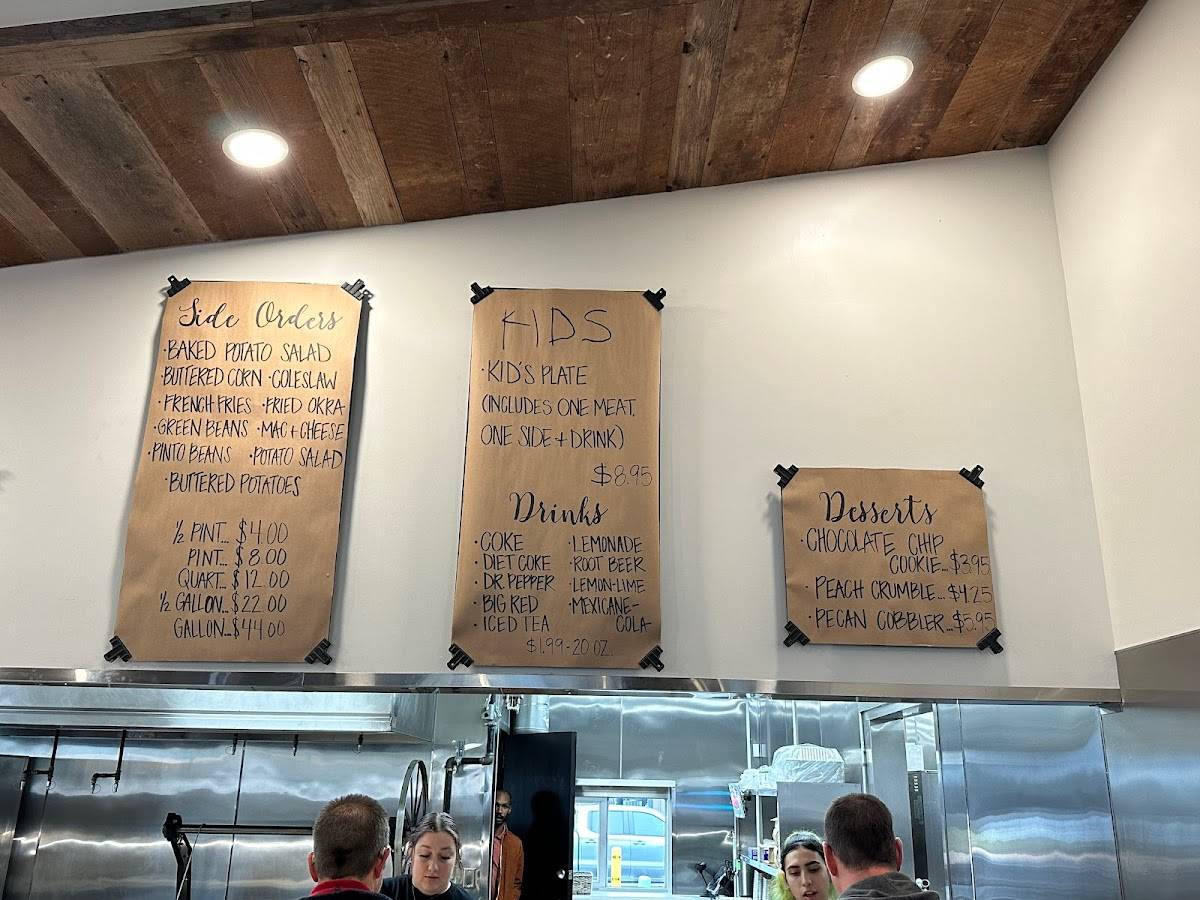 Side Orders
·BAKED POTATO SALAD
·BUTTERED CORN ·COLESLAW
·FRENCH FRIES ·FRIED OKRA
·GREEN BEANS ·MAC+CHEESE
·PINTO BEANS ·POTATO SALAD
·BUTTERED POTATOES
½ PINT... $4.00
PINT... $8.00
QUART... $12.00
½ GALLON... $22.00
GALLON... $44.00
KIDS
·KID'S PLATE
(INCLUDES ONE MEAT,
ONE SIDE + DRINK)
$8.95
Drinks
·COKE ·LEMONADE
·DIET COKE ·ROOT BEER
·DR PEPPER ·LEMON-LIME
·BIG RED ·MEXICANE-
·ICED TEA COLA-
$1.99-20 OZ.
Desserts
·CHOCOLATE CHIP
COOKIE...$3.95
·PEACH CRUMBLE...$4.25
·PECAN COBBLER...$5.95